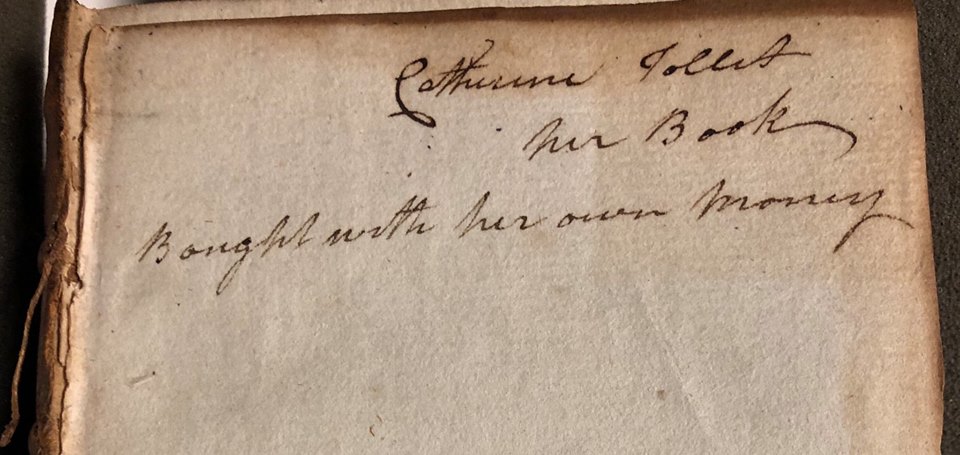 Catherine Tollet
her Book
Bought with her own money